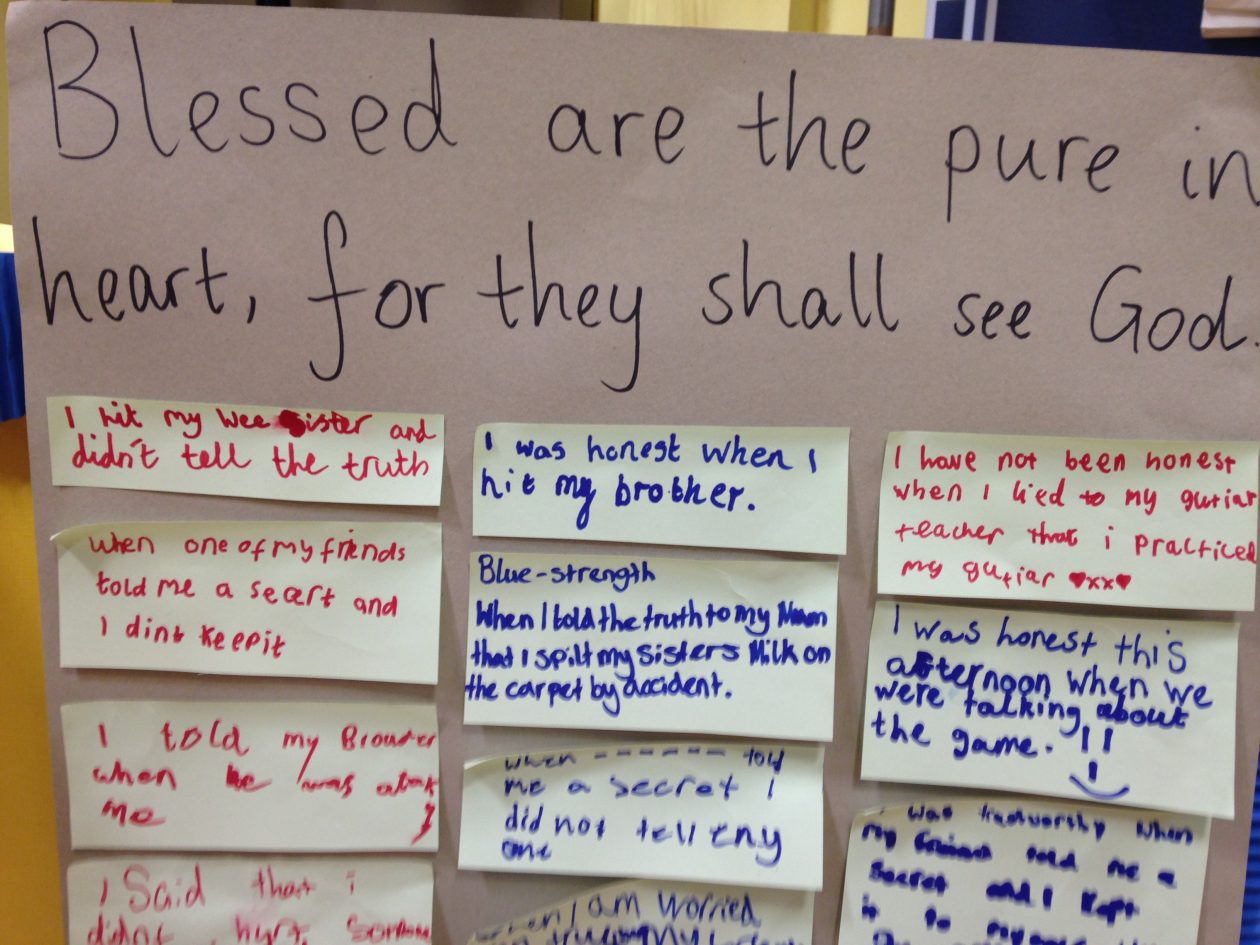 Blessed are the pure in
heart, for they shall see God.
I hit my wee sister and
didn't tell the truth
when one of my friends
told me a secrt and
I dint keep it
I told my
when he was
me
I Said that i
didnt hurt
I was honest when I
hit my brother.
Blue-strength
When I told the truth to my Mum
that I spilt my sisters Milk on
the carpet by accident.
when ------- told
me a secret I
did not tell eny
one
when I am worried
my
I have not been honest
when I lied to my gutiar
teacher that i practiced
my gutiar ♥xx♥
I was honest this
afternoon when we
were talking about
the game. !!
I was trustworthy when
my friend told me a
secret and I kept
it to